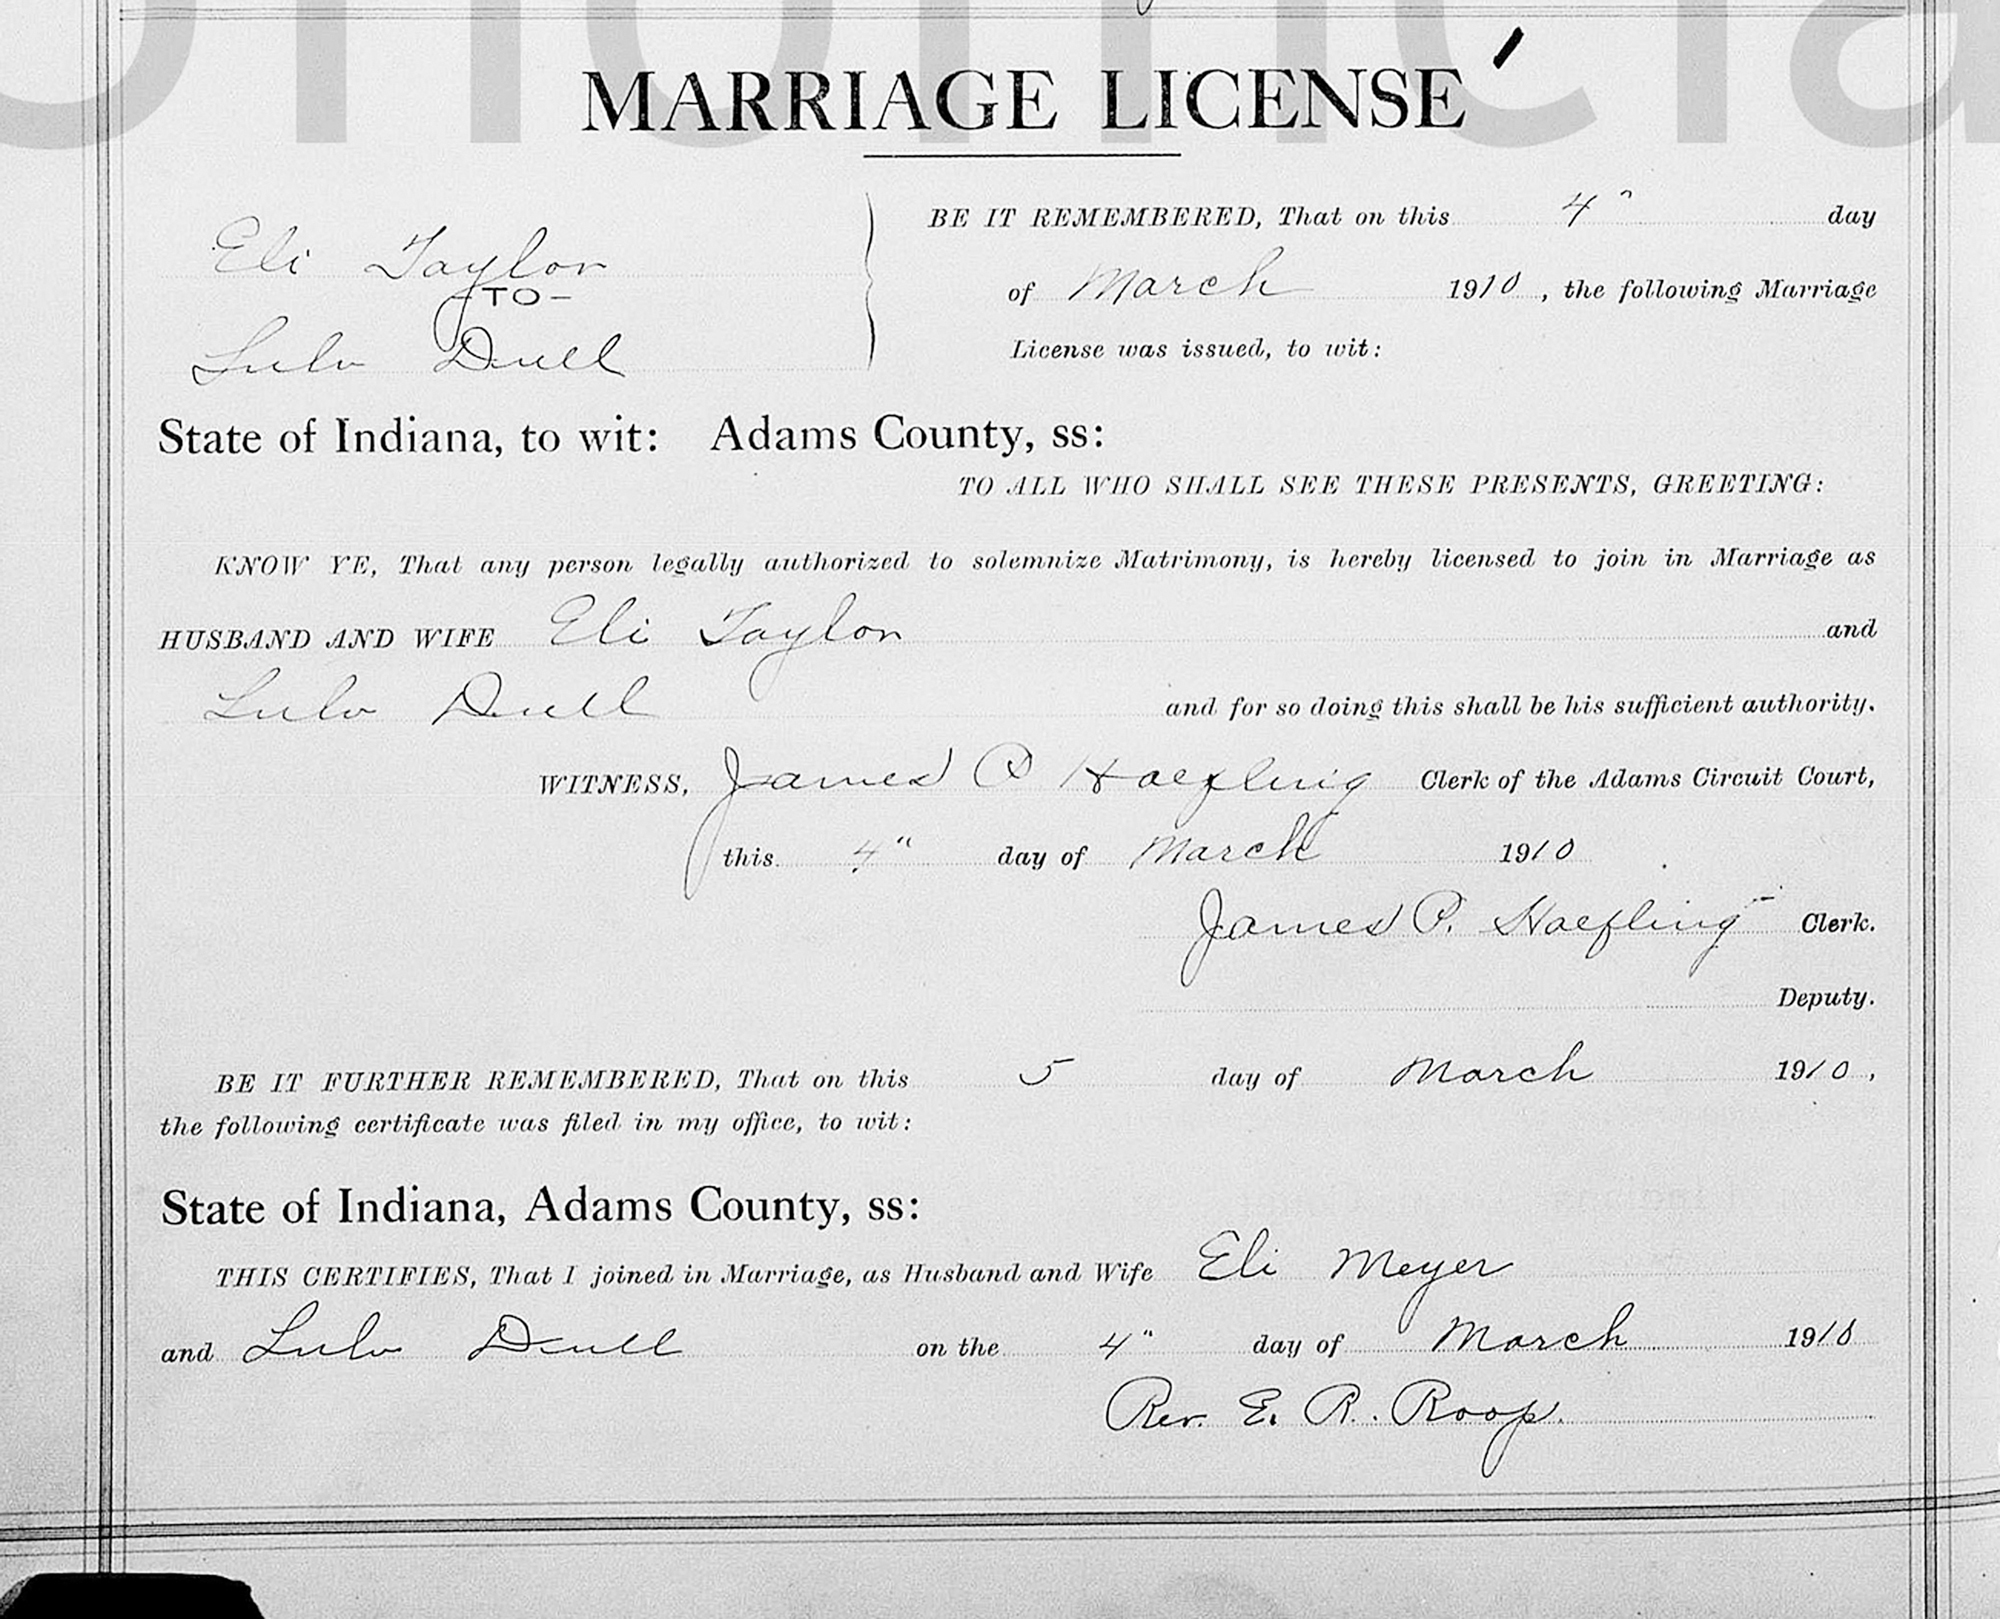 MARRIAGE LICENSE
Eli Taylor
-TO-
Lulu Duell
BE IT REMEMBERED, That on this 4" day
of March 1910, the following Marriage
License was issued, to wit:
State of Indiana, to wit: Adams County, ss:
TO ALL WHO SHALL SEE THESE PRESENTS, GREETING:
KNOW YE, That any person legally authorized to solemnize Matrimony, is hereby licensed to join in Marriage as
HUSBAND AND WIFE Eli Taylor and
Lulu Duell and for so doing this shall be his sufficient authority.
WITNESS, James P Haefling Clerk of the Adams Circuit Court,
this 4" day of March 1910
James P. Haefling Clerk.
Deputy.
BE IT FURTHER REMEMBERED, That on this 5 day of March 1910,
the following certificate was filed in my office, to wit:
State of Indiana, Adams County, ss:
THIS CERTIFIES, That I joined in Marriage, as Husband and Wife Eli Meyer
and Lulu Duell on the 4" day of March 1910
Rev. E. R. Roop.